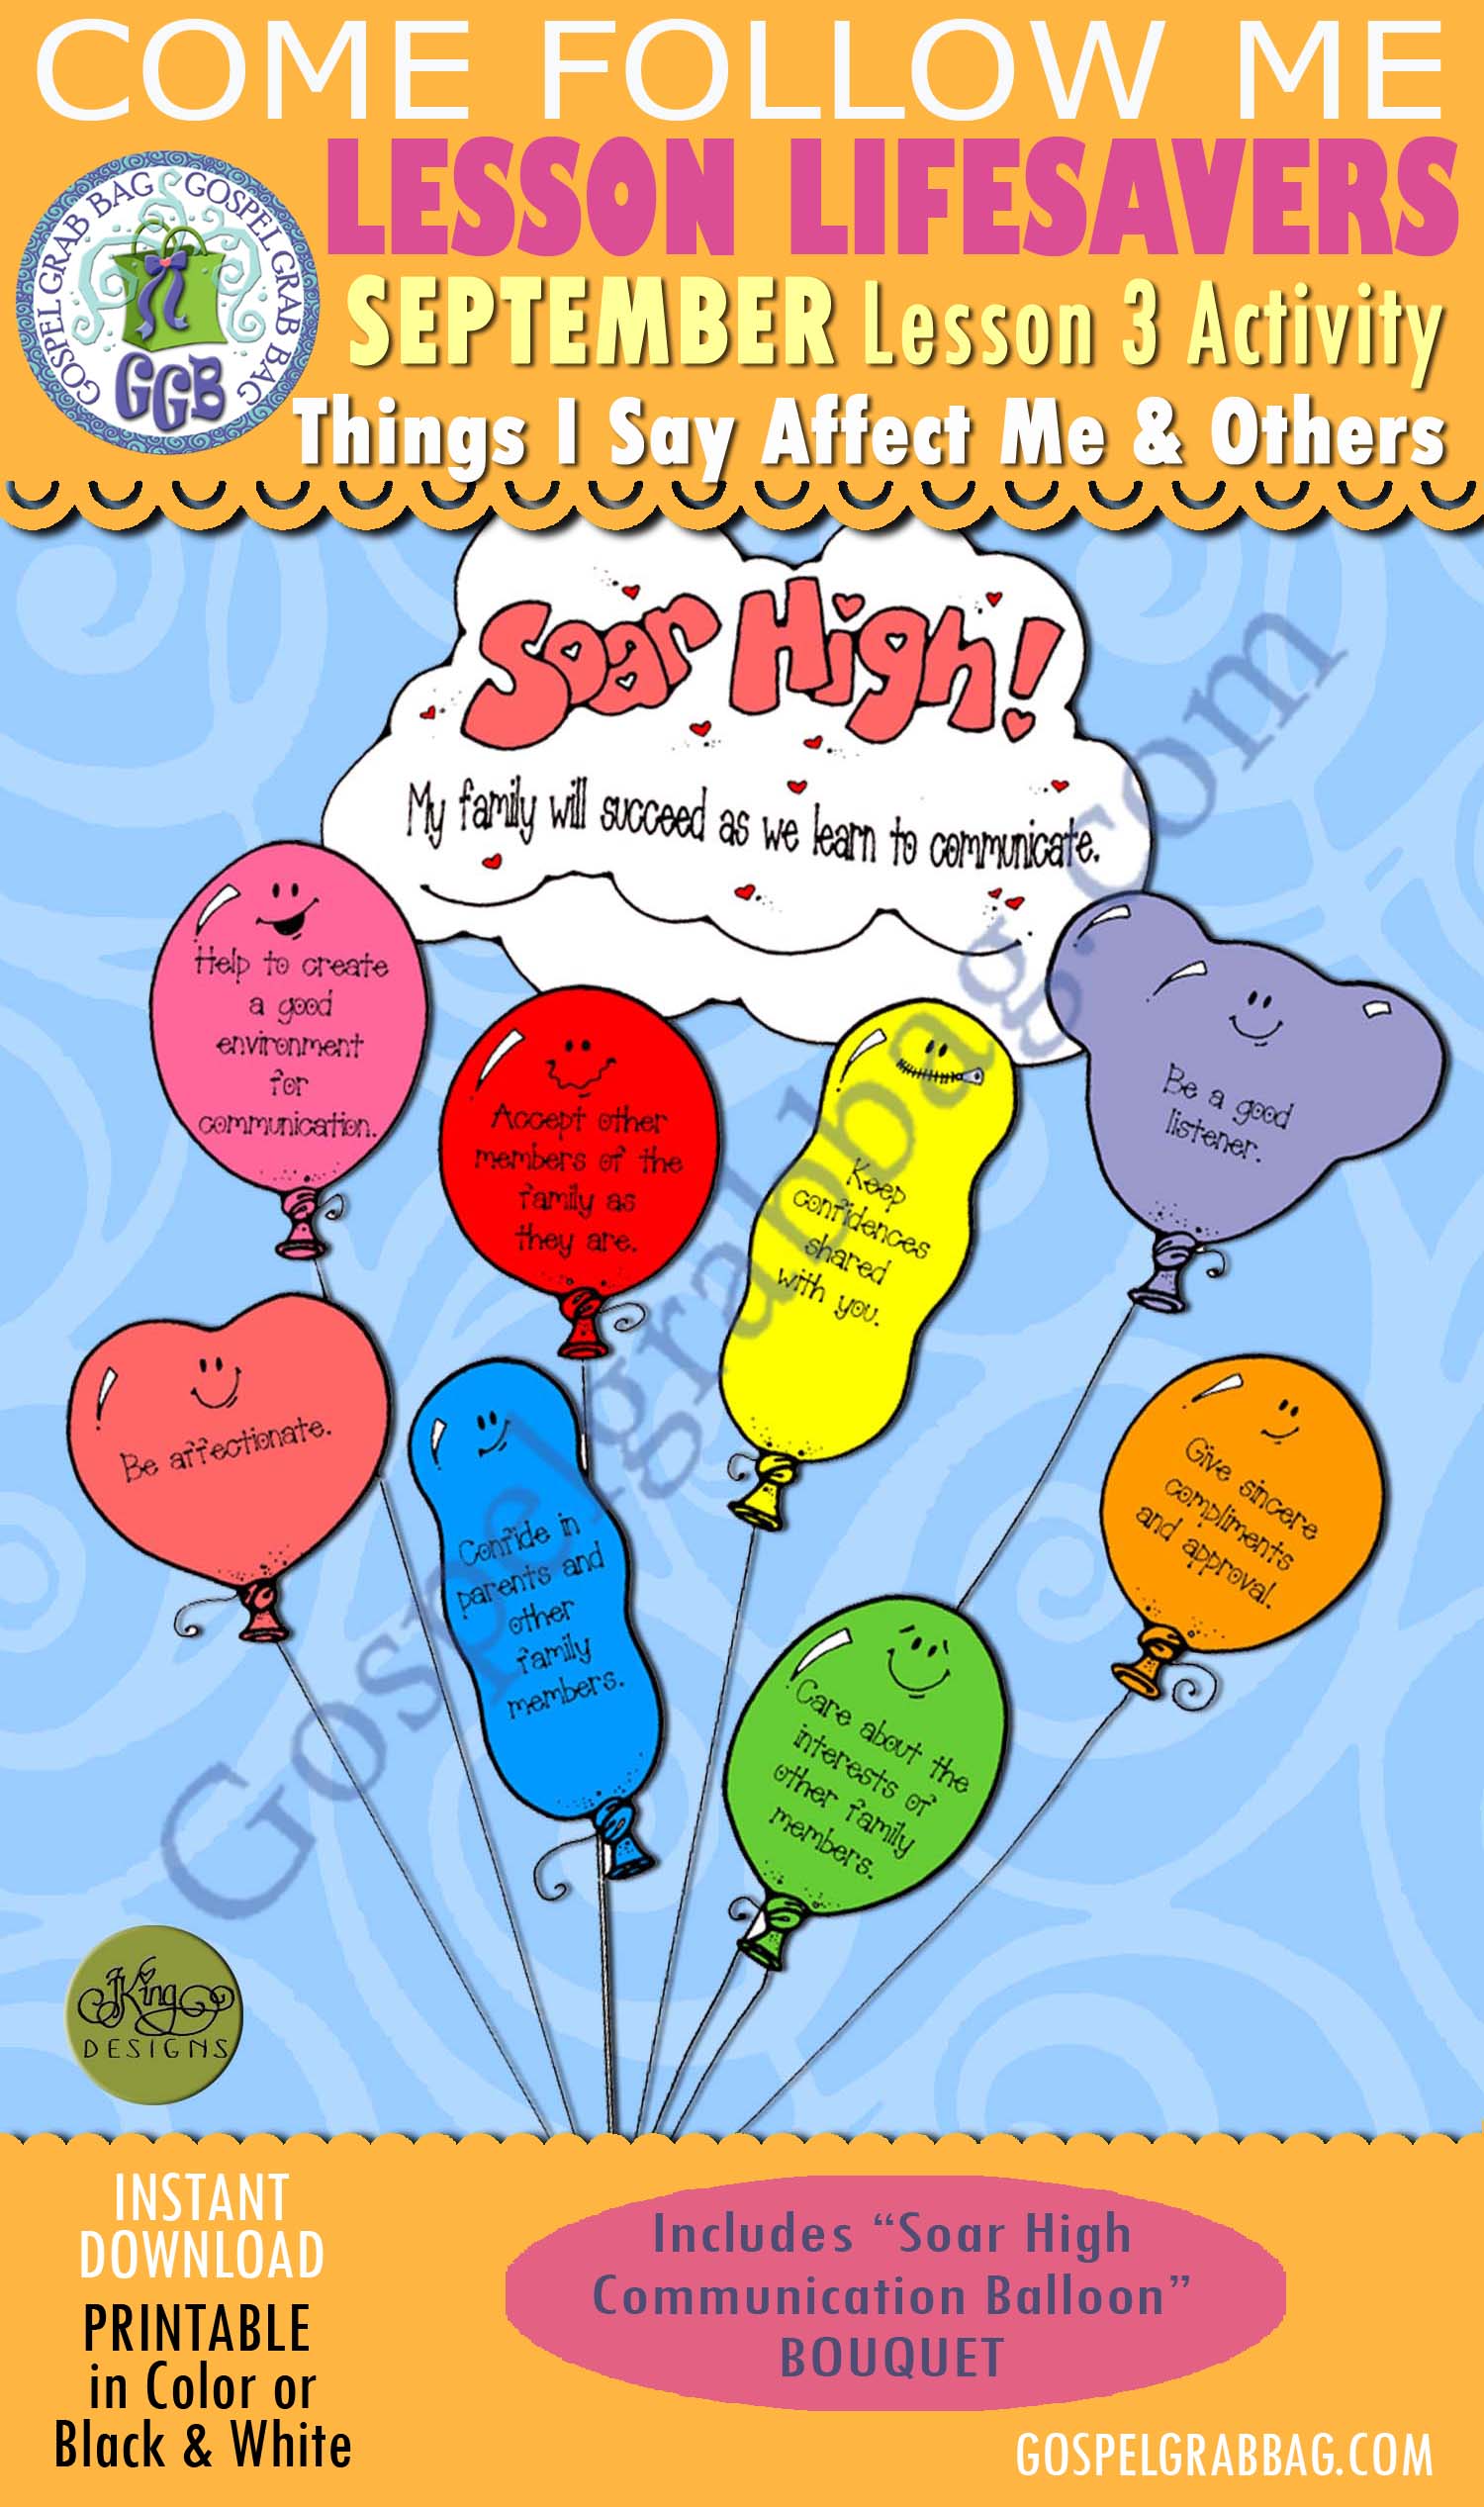 COME FOLLOW ME
LESSON LIFESAVERS
GOSPEL GRAB BAG GOSPEL GRAB BAG
GGB
SEPTEMBER Lesson 3 Activity
Things I Say Affect Me & Others
Soar High!
My family will succeed as we learn to communicate.
Help to create
a good
environment
for
communication.
Accept other
members of the
family as
they are.
Keep
confidences
shared
with you.
Be a good
listener.
Be affectionate.
Confide in
parents and
other
family
members.
Give sincere
compliments
and approval.
Care about the
interests of
other family
members.
Gospelgrabbag.com
JKing
DESIGNS
INSTANT
DOWNLOAD
PRINTABLE
in Color or
Black & White
Includes “Soar High
Communication Balloon”
BOUQUET
GOSPELGRABBAG.COM